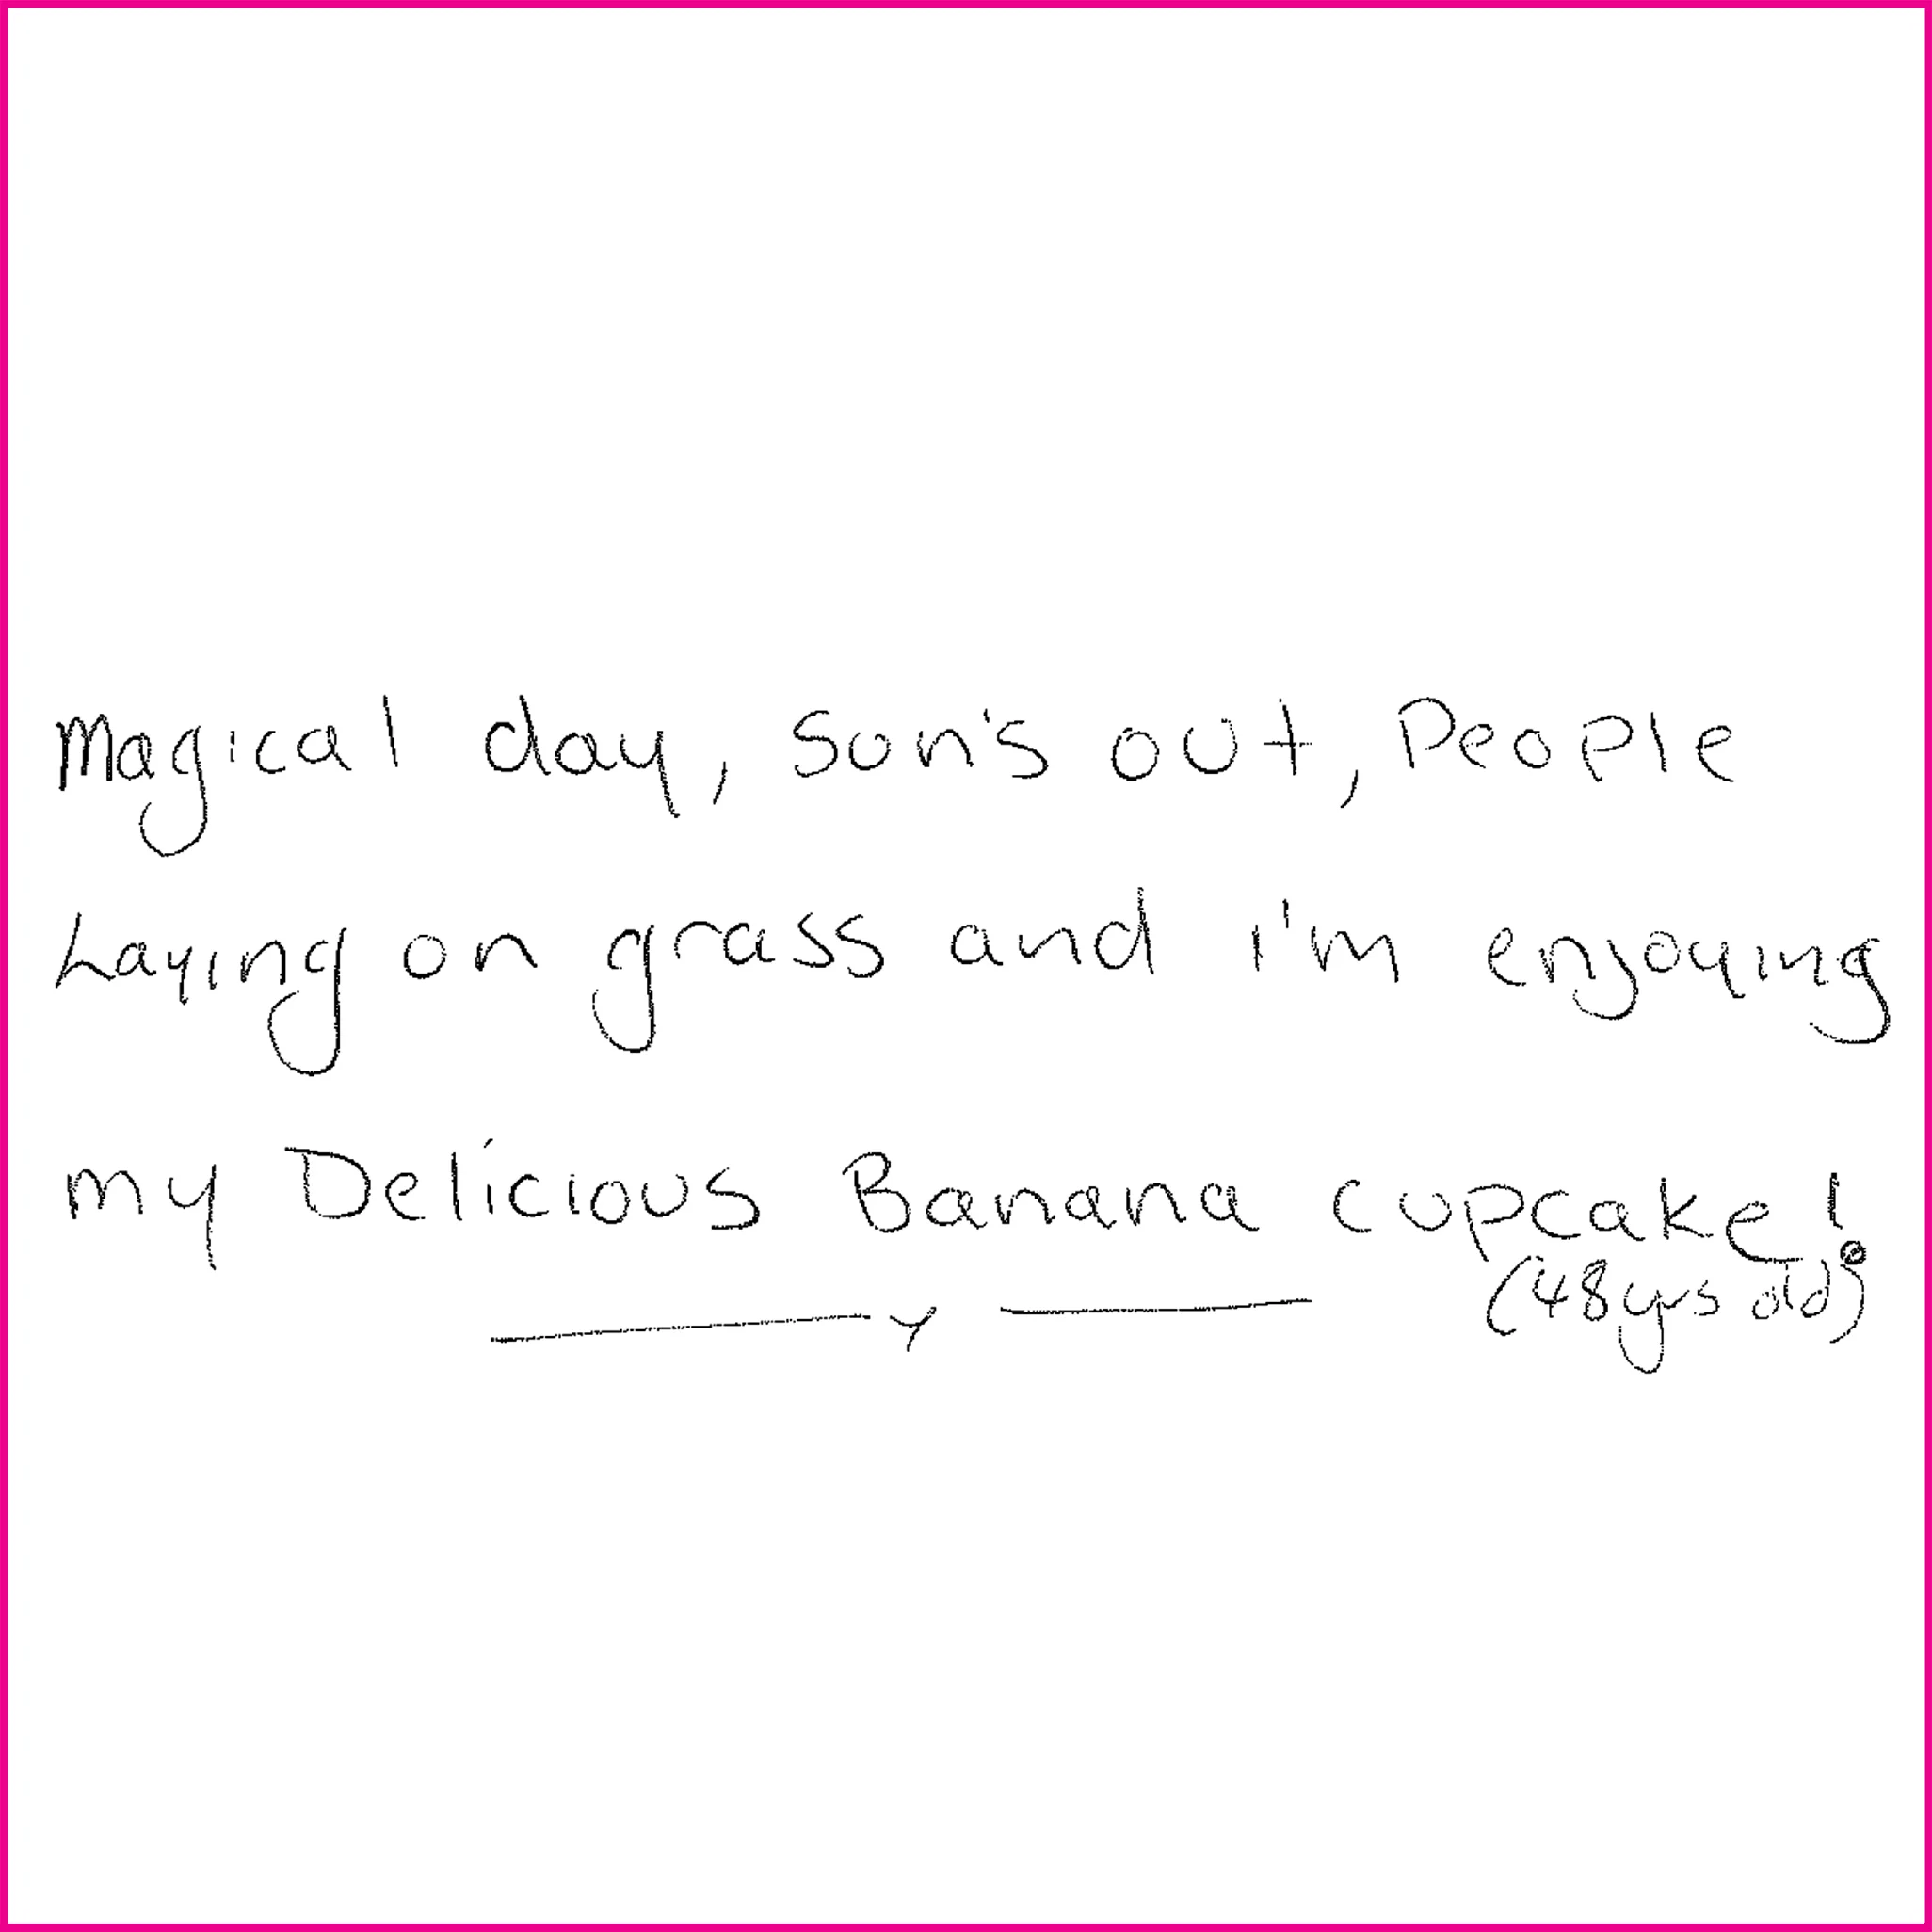 Magical day, Son's out, People
Laying on grass and i'm enjoying
my Delicious Banana cupcake!
(48yrs old)